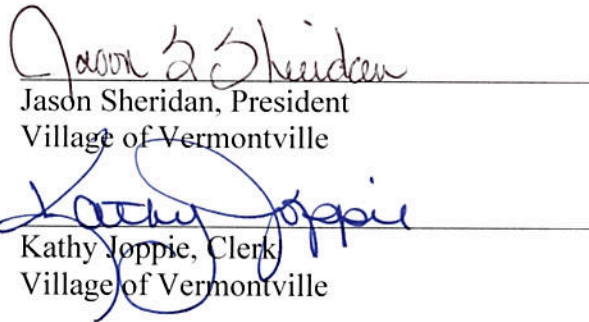 Jason S Sheridan
Jason Sheridan, President
Village of Vermontville
Kathy Joppie
Kathy Joppie, Clerk
Village of Vermontville